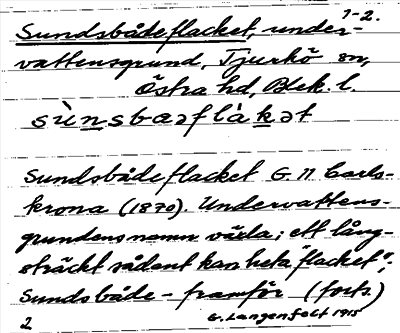 1-2.
Sundsbådeflacket, under-
vattensgrund, Tjurkö sn,
Östra hd, Blek. l.
sùnsbaəflàkət
Sundsbådeflacket G 11 Carls-
krona (1870). Undervattens-
grundens namn växla; ett lång-
sträckt sådent kan heta "flacket";
Sundsbåde- framför (forts.)
2 G. Langenfelt 1915